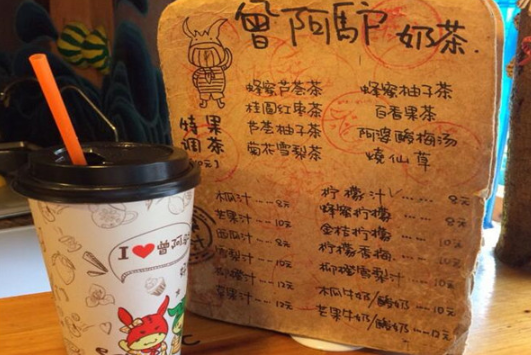 曾阿驴奶茶.
特果
调茶
(10元)
蜂蜜芦荟茶
桂圆红枣茶
芦荟柚子茶
菊花雪梨茶
蜂蜜柚子茶
百香果茶
阿婆酸梅汤
烧仙草
木瓜汁----8元
芒果汁----10元
西瓜汁----8元
梨汁----10元
汁----12元
果汁----12元
柠檬汁......8元
蜂蜜柠檬......8元
金桔柠檬......10元
柠檬香梅......10元
柳橙雪梨汁......12元
木瓜牛奶/酸奶....10元
芒果牛奶/酸奶....12元
I ❤ 曾阿